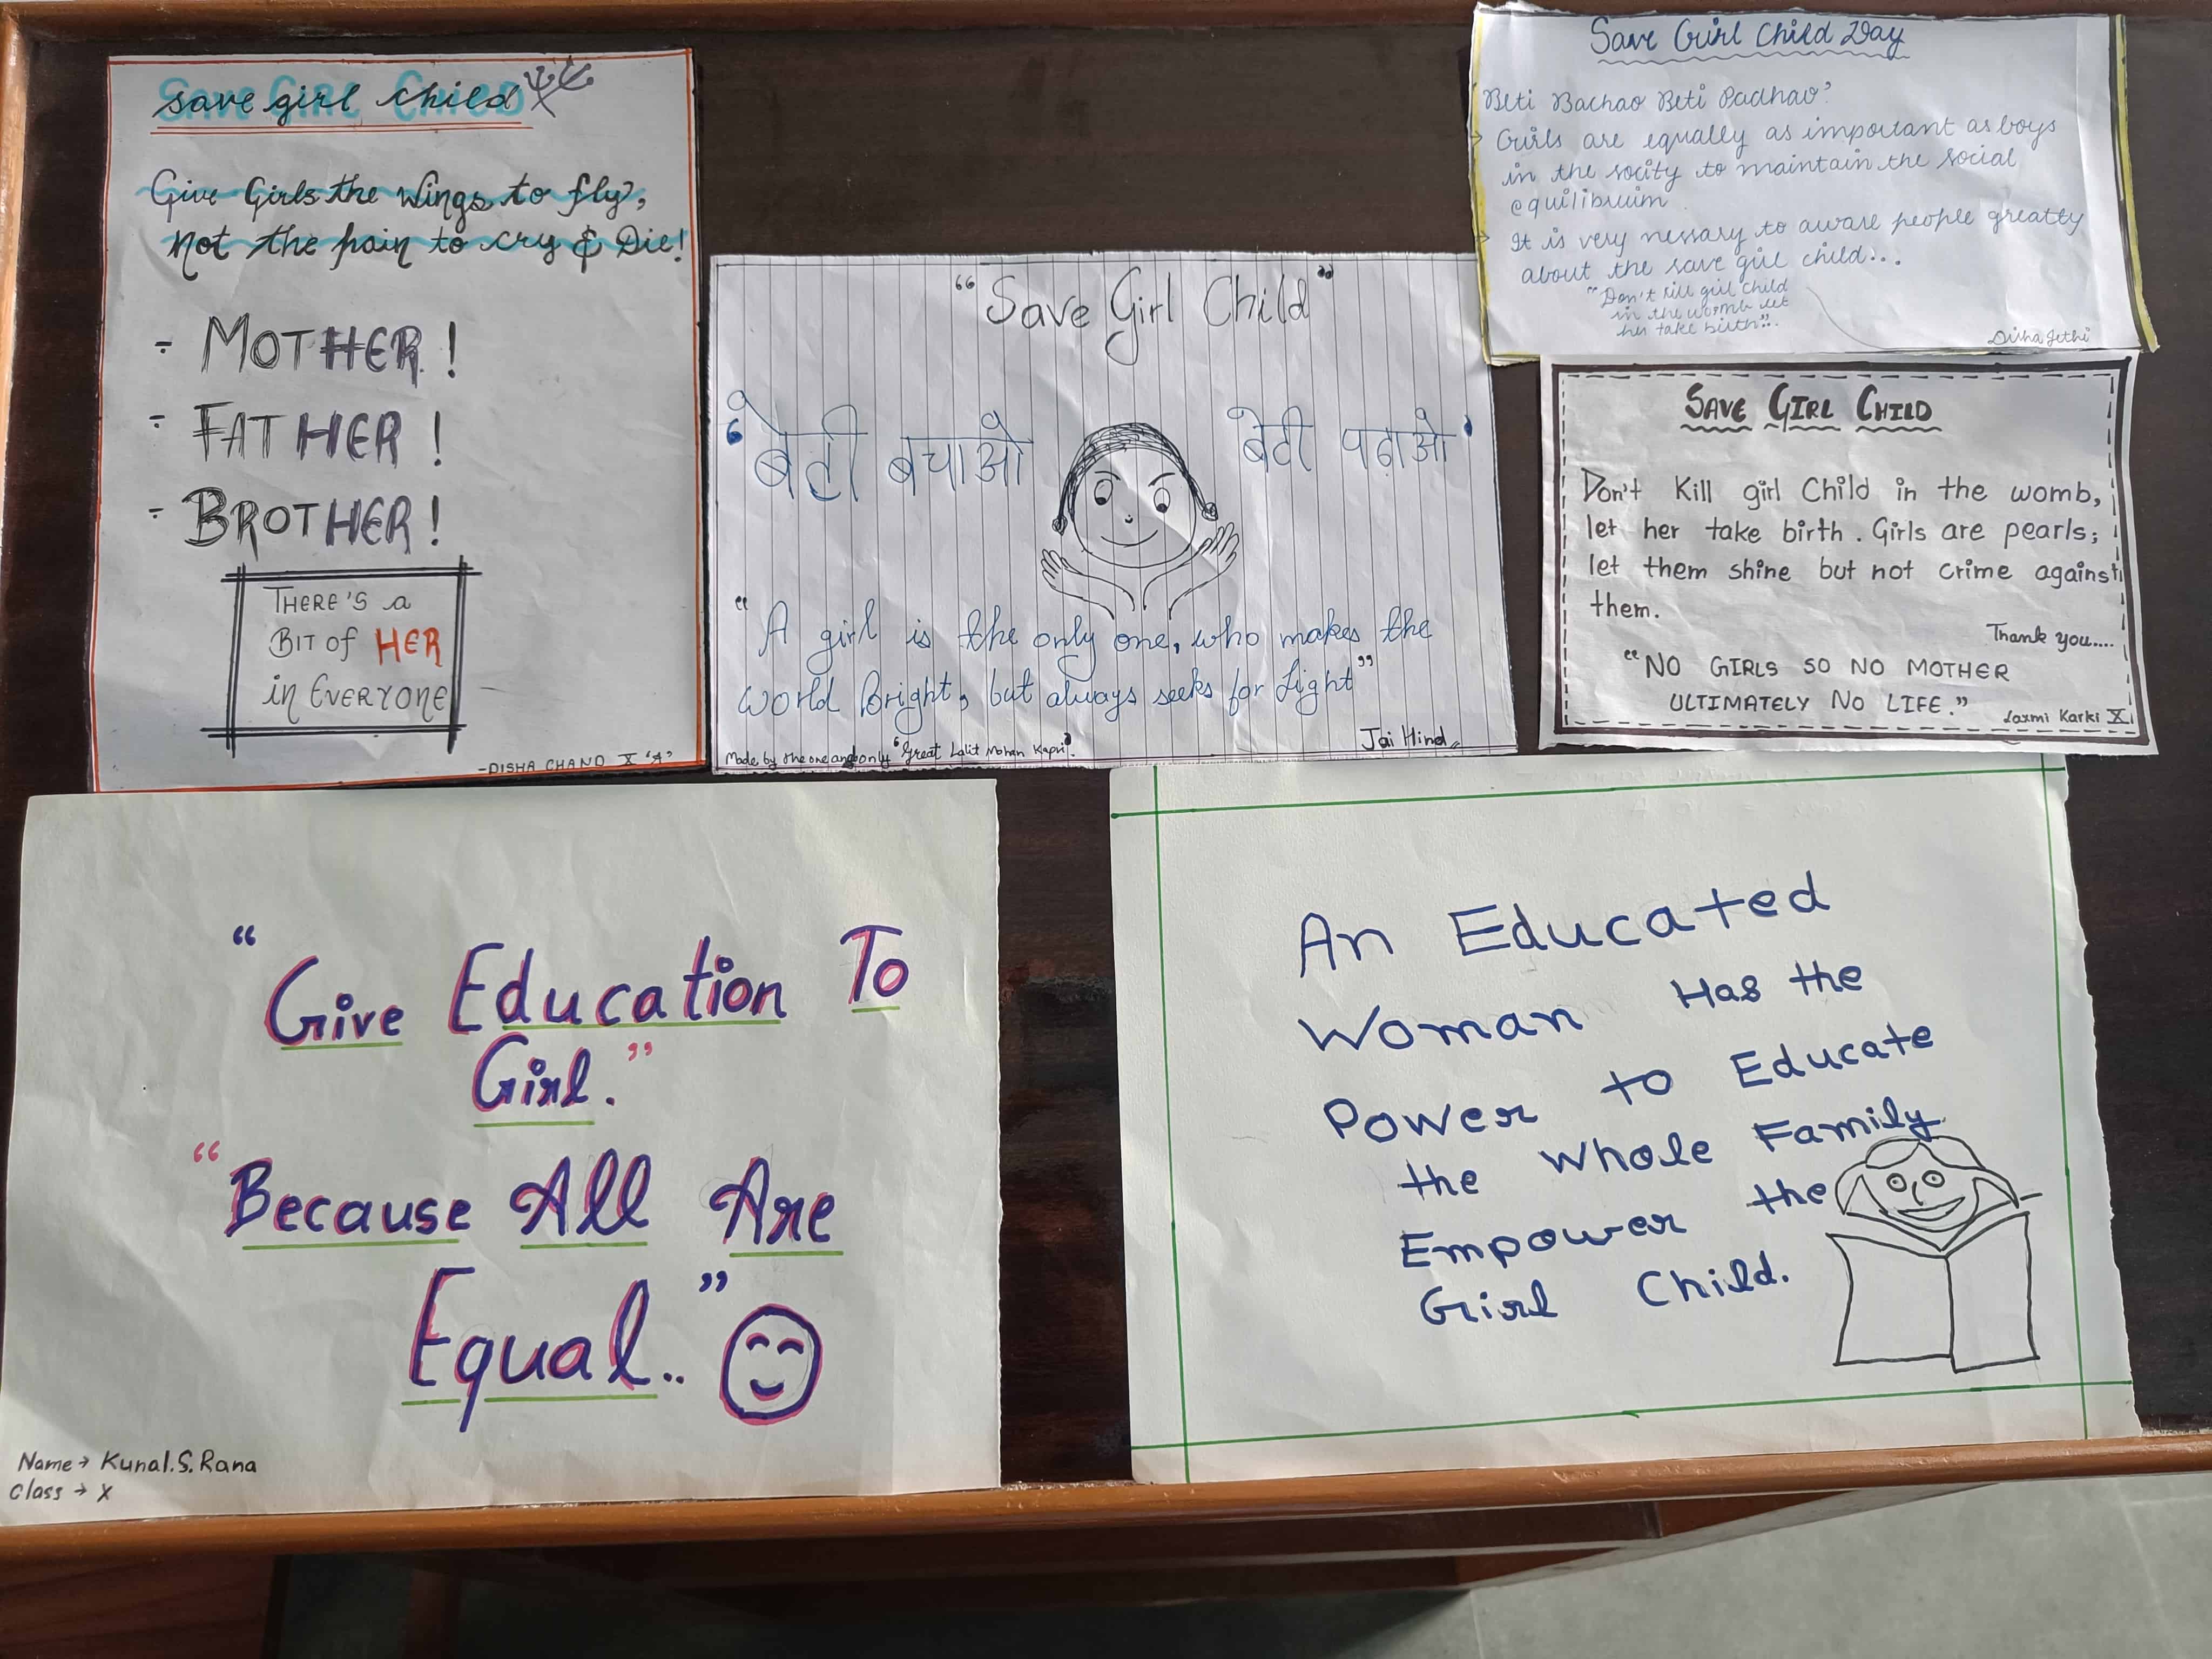 Save girl child
Give Girls the Wings to fly,
Not the pain to cry & Die!
- MOTHER!
- FATHER!
- BROTHER!
THERE'S a
BIT of HER
in EVERYONE
-DISHA CHAND X 'A'
"Save Girl Child"
'बेटी बचाओ बेटी पढ़ाओ'
"A girl is the only one, who makes the
World Bright, but always seeks for Light"
Jai Hind
Made by the one and only "Great Lalit Mohan Kapri"
Save Girl Child Day
Beti Bachao Beti Padhao?
→ Girls are equally as important as boys
in the socity to maintain the social
equilibrium
→ It is very nessary to aware people greatly
about the save girl child...
"Don't kill girl child
in the womb let
her take birth".
Disha Jethi
SAVE GIRL CHILD
Don't Kill girl Child in the womb,
let her take birth. Girls are pearls;
let them shine but not crime against
them.
Thank you....
"NO GIRLS SO NO MOTHER
ULTIMATELY NO LIFE."
Laxmi Karki X
"Give Education To
Girl."
"Because All Are
Equal.."
Name → Kunal.S.Rana
Class → X
An Educated
Woman Has the
Power to Educate
the Whole Family
Empower the
Girl Child.